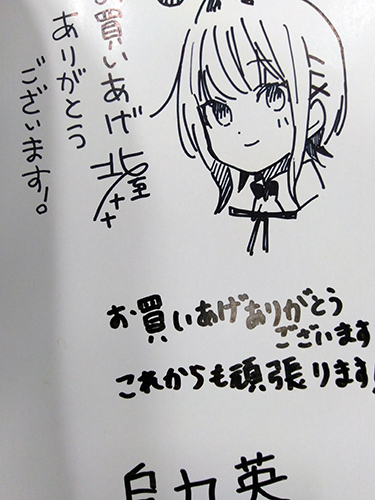 お買いあげ
ありがとう
ございます!
お買いあげありがとう
ございます
これからも頑張ります!